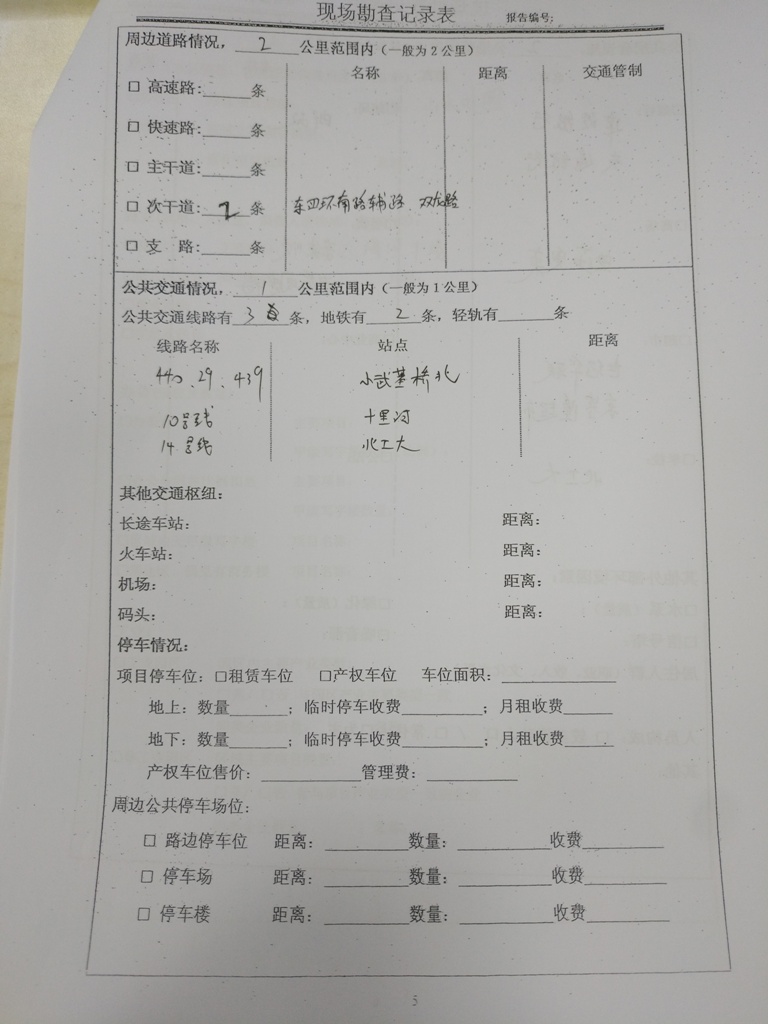 现场勘查记录表 报告编号:
周边道路情况，2公里范围内（一般为2公里）
名称 距离 交通管制
□ 高速路:______条
□ 快速路:______条
□ 主干道:______条
□ 次干道:2条 东四环南路辅路 双龙路
□ 支 路:______条
公共交通情况，1公里范围内（一般为1公里）
公共交通线路有3条，地铁有2条，轻轨有______条
线路名称 站点 距离
440、29、439 小武基桥北
10号线 十里河
14号线 北工大
其他交通枢纽：
长途车站： 距离：
火车站： 距离：
机场： 距离：
码头： 距离：
停车情况：
项目停车位：□租赁车位 □产权车位 车位面积：______
地上：数量______；临时停车收费______；月租收费______
地下：数量______；临时停车收费______；月租收费______
产权车位售价：______管理费：______
周边公共停车场位：
□ 路边停车位 距离：______数量：______收费______
□ 停车场 距离：______数量：______收费______
□ 停车楼 距离：______数量：______收费______
5